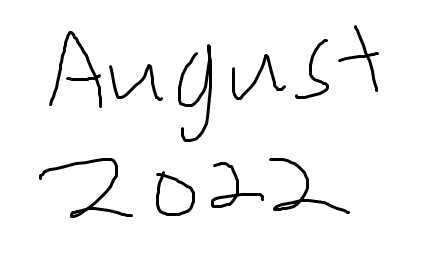 August
2022